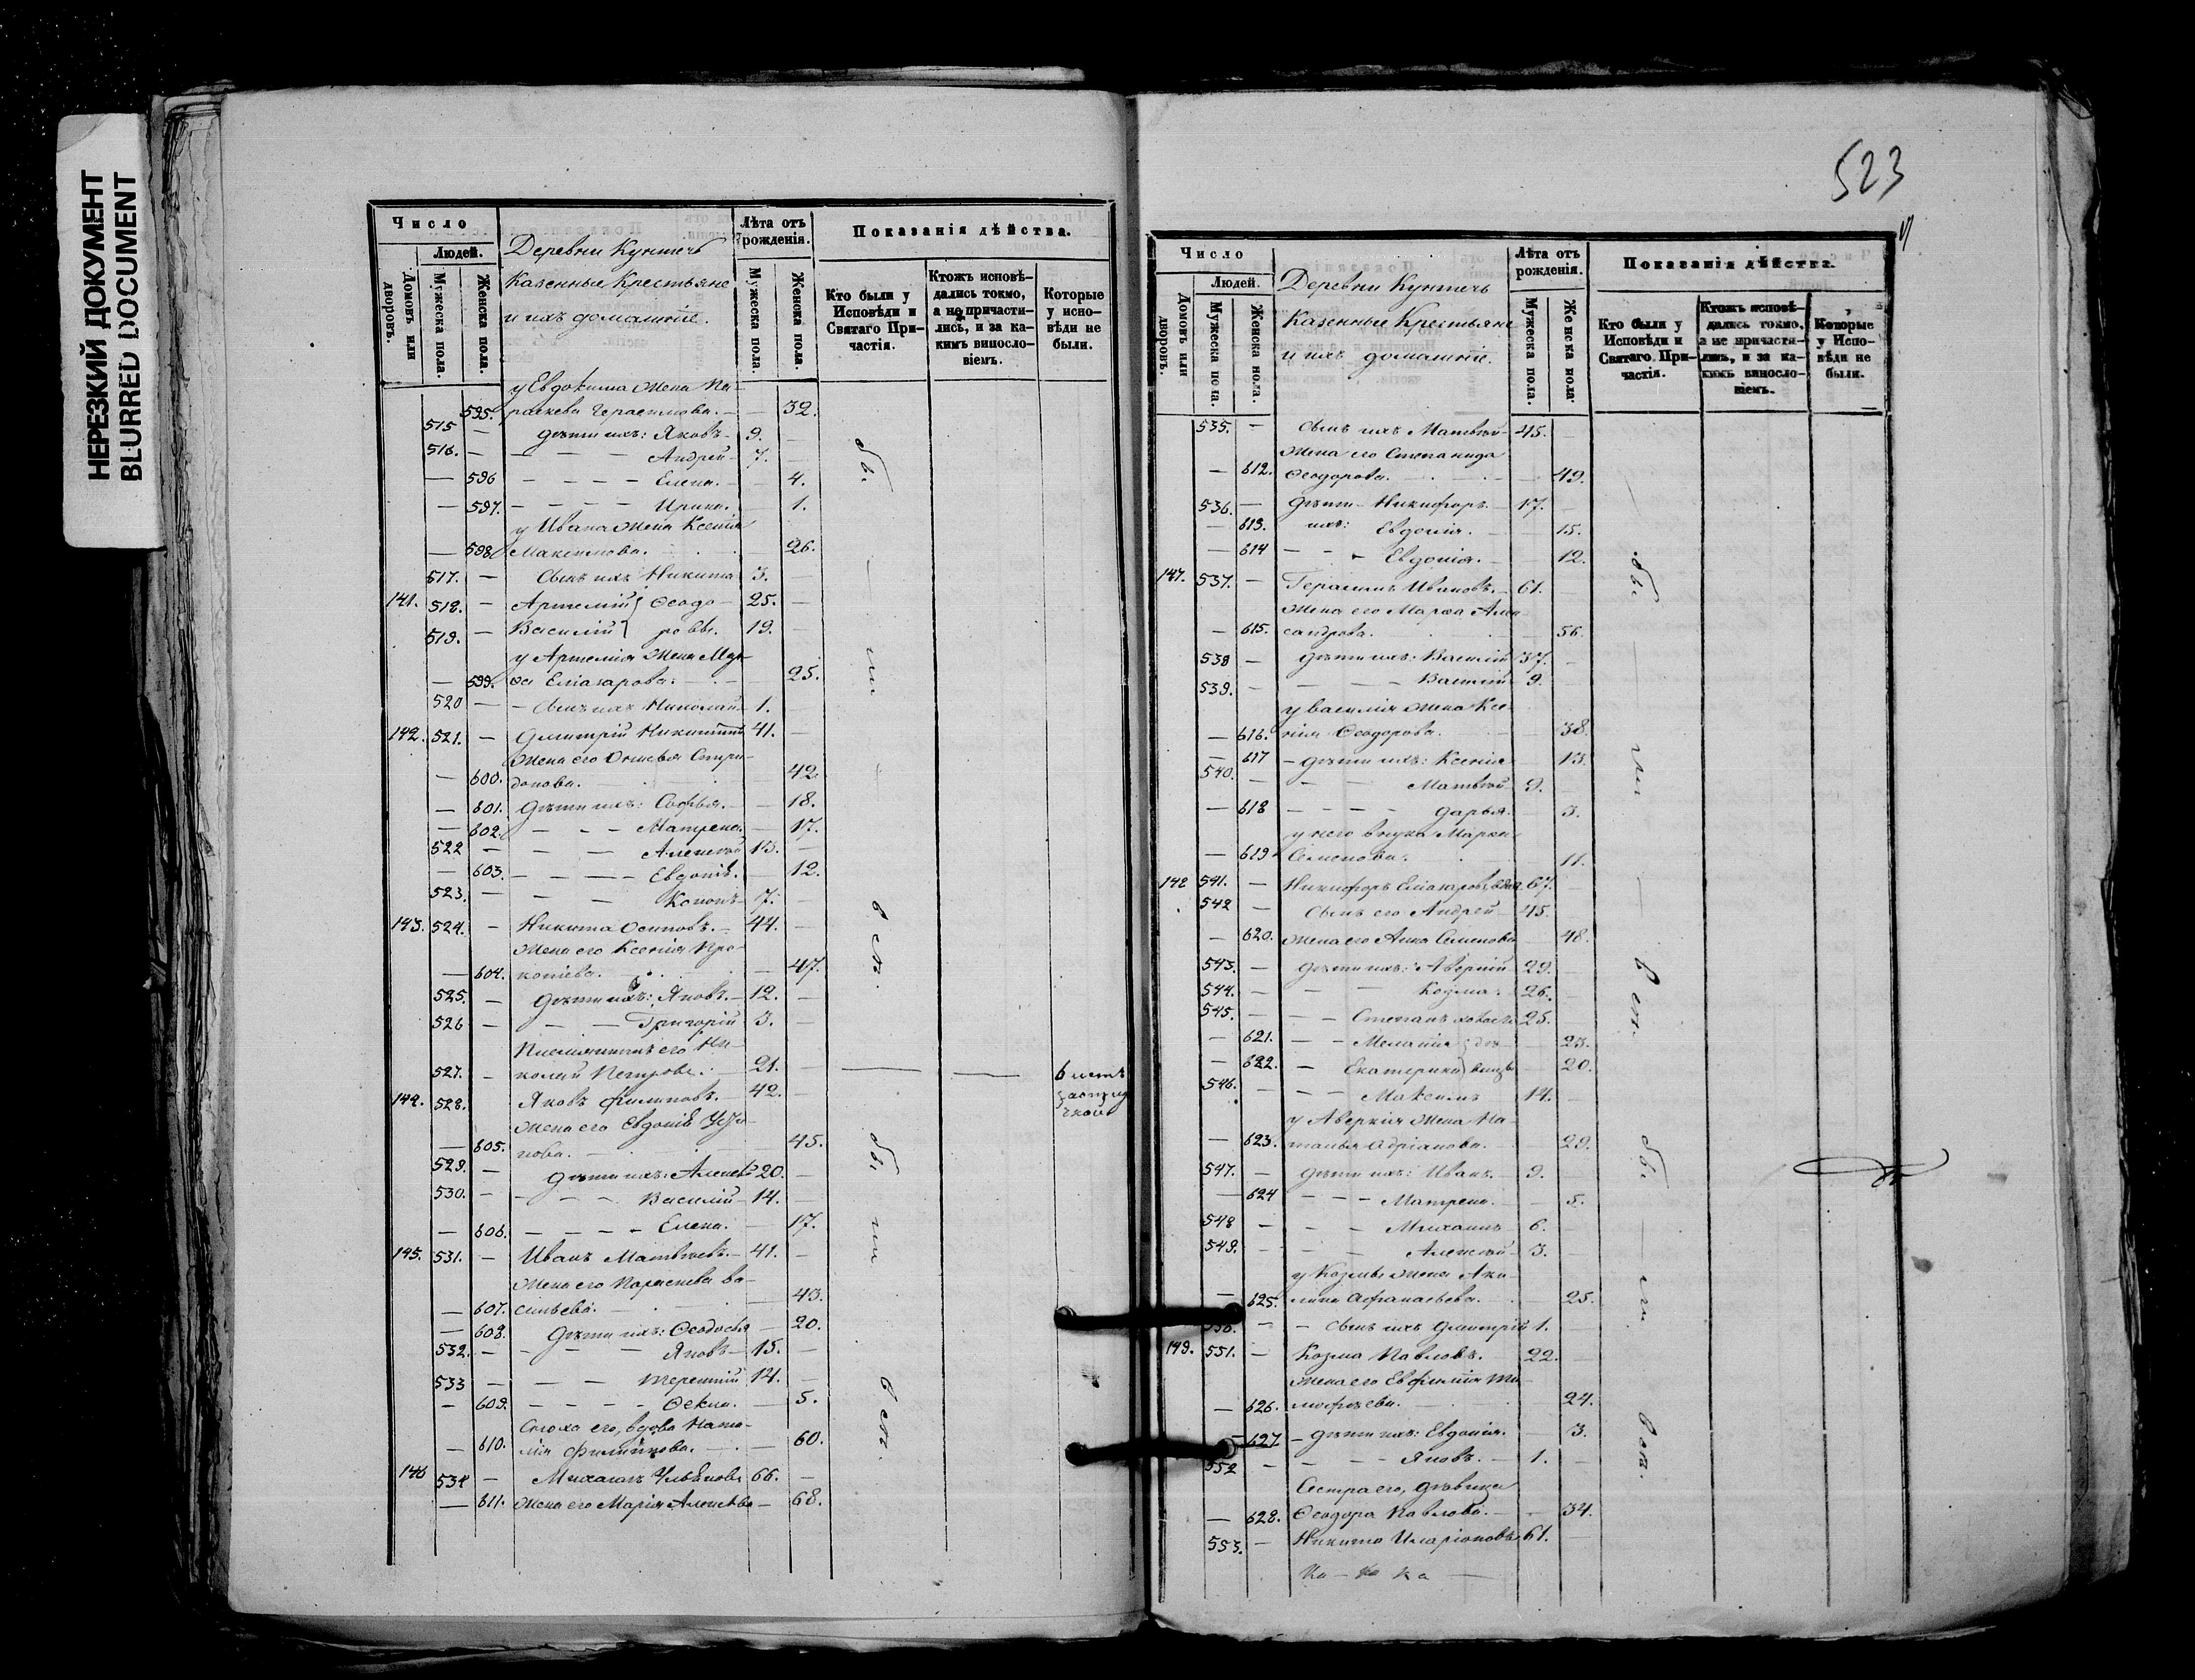 НЕРЕЗКИЙ ДОКУМЕНТ
BLURRED DOCUMENT
Число
Людей.
Домовъ или дворовъ.
Мужеска пола.
Женска пола.
Деревни Кунтечь
Казенные Крестьяне
и ихъ домашніе.
Лѣта отъ рожденія.
Мужеска пола.
Женска пола.
Показанія дѣйства.
Кто были у Исповѣди и Святаго Причастія.
Ктожъ исповѣдались токмо, а не причастились, и за какимъ винословіемъ.
Которые у исповѣди не были.
у Евдокима жена Па-
595. раскева Герасимова. 32.
515 — дѣти ихъ: Яковъ 9.
516. — Андрей 7.
— 596 Елена. 4.
— 597. Ирина. 1.
у Ивана жена Ксенія
— 598 Максимова. 26.
517. — сынъ ихъ Никита 3.
141. 518. — Артемій } Ѳеодо- 25.
519. — Василій } ровы. 19.
у Артемія жена Мар-
— 599. ѳа Еліазарова. 25.
520 — сынъ ихъ Николай 1.
142. 521. — Димитрій Никитинъ 41.
жена его Спири-
— 600. донова. 42
— 601. дѣти ихъ: Софья. 18.
— 602. Матрена. 17.
522 — Алексѣй 13.
— 603. Евдокія. 12.
523. — Кононъ 7.
143. 524. — Никита Осиповъ. 44.
жена его Ксенія Про-
— 604. копіева. 47.
525. — дѣти ихъ: Яковъ. 12.
526 — Григорій 3.
Племянникъ его Ни-
527. — колай Петровъ. 21.
144. 528. — Яковъ Филиповъ. 42.
жена его Евдокія
— 605. 45.
529. — дѣти ихъ: Алексѣй 20.
530. — Василій 14.
— 606. Елена. 17.
145. 531. — Иванъ Матвѣевъ. 41.
жена его Параскева Ва-
— 607. сильева. 43.
— 608. дѣти ихъ: Ѳеодосья 20.
532. — Яковъ 15.
533 — Терентій 14.
— 609. Ѳекла. 5.
Сноха его, вдова Ната-
— 610. лія Филипова. 60.
146 534 — Михаилъ Ульяновъ 66.
— 611. жена его Марія Алексѣева 68.
бы — ли — въ исп.
бы ли въ исп.
523
Число
Людей.
Домовъ или дворовъ.
Мужеска пола.
Женска пола.
Деревни Кунтечь
Казенные Крестьяне
и ихъ домашніе.
Лѣта отъ рожденія.
Мужеска пола.
Женска пола.
Показанія дѣйства.
Кто были у Исповѣди и Святаго Причастія.
Ктожъ исповѣдались токмо, а не причастились, и за какимъ винословіемъ.
Которые у Исповѣди не были.
535. — сынъ ихъ Матвѣй 45.
жена его Степанида
— 612. Ѳеодорова. 49.
536. — дѣти Никифоръ 17.
— 613. ихъ: Евдокія. 15.
— 614 Евдокія. 12.
147. 537. — Герасимъ Ивановъ. 61.
жена его Марѳа Алек-
— 615. сандрова. 56.
538 — дѣти ихъ: Василій 37.
539. — Василій 9.
у Василія жена Ксе-
— 616. нія Ѳеодорова. 38.
— 617 дѣти ихъ: Ксенія 13.
540. — Матвѣй 9.
— 618 Дарья. 3.
у него внука Марѳа
— 619 Семенова. 11.
148 541. — Никифоръ Еліазаровъ, вдов. 67.
542 — сынъ его Андрей 45.
— 620. жена его Анна Семенова 48.
543. — дѣти ихъ: Аверкій 29.
544. — Козма. 26.
545. — Степанъ холостъ 25.
— 621. Меланія } дѣ- 23.
— 622. Екатерина } вицы 20.
546. — Максимъ 14.
у Аверкія жена На-
— 623. талья Адріанова. 29.
547. — дѣти ихъ: Иванъ. 9.
— 624 Матрена. 8.
548 — Михаилъ 6.
549. — Алексѣй 3.
у Козмы жена Аку-
— 625. лина Аѳанасьева. 25.
550. — сынъ ихъ Димитрій 1.
149. 551. — Козма Павловъ. 22.
жена его Евфимія Ти-
— 626. мофѣева. 24.
— 627 дѣти ихъ: Евдокія. 3.
552 — Яковъ. 1.
Сестра его, дѣвица
— 628. Ѳеодора Павлова. 34.
553. — Никита Иларіоновъ 61.
бы — ли — въ исп.
бы ли въ исп.